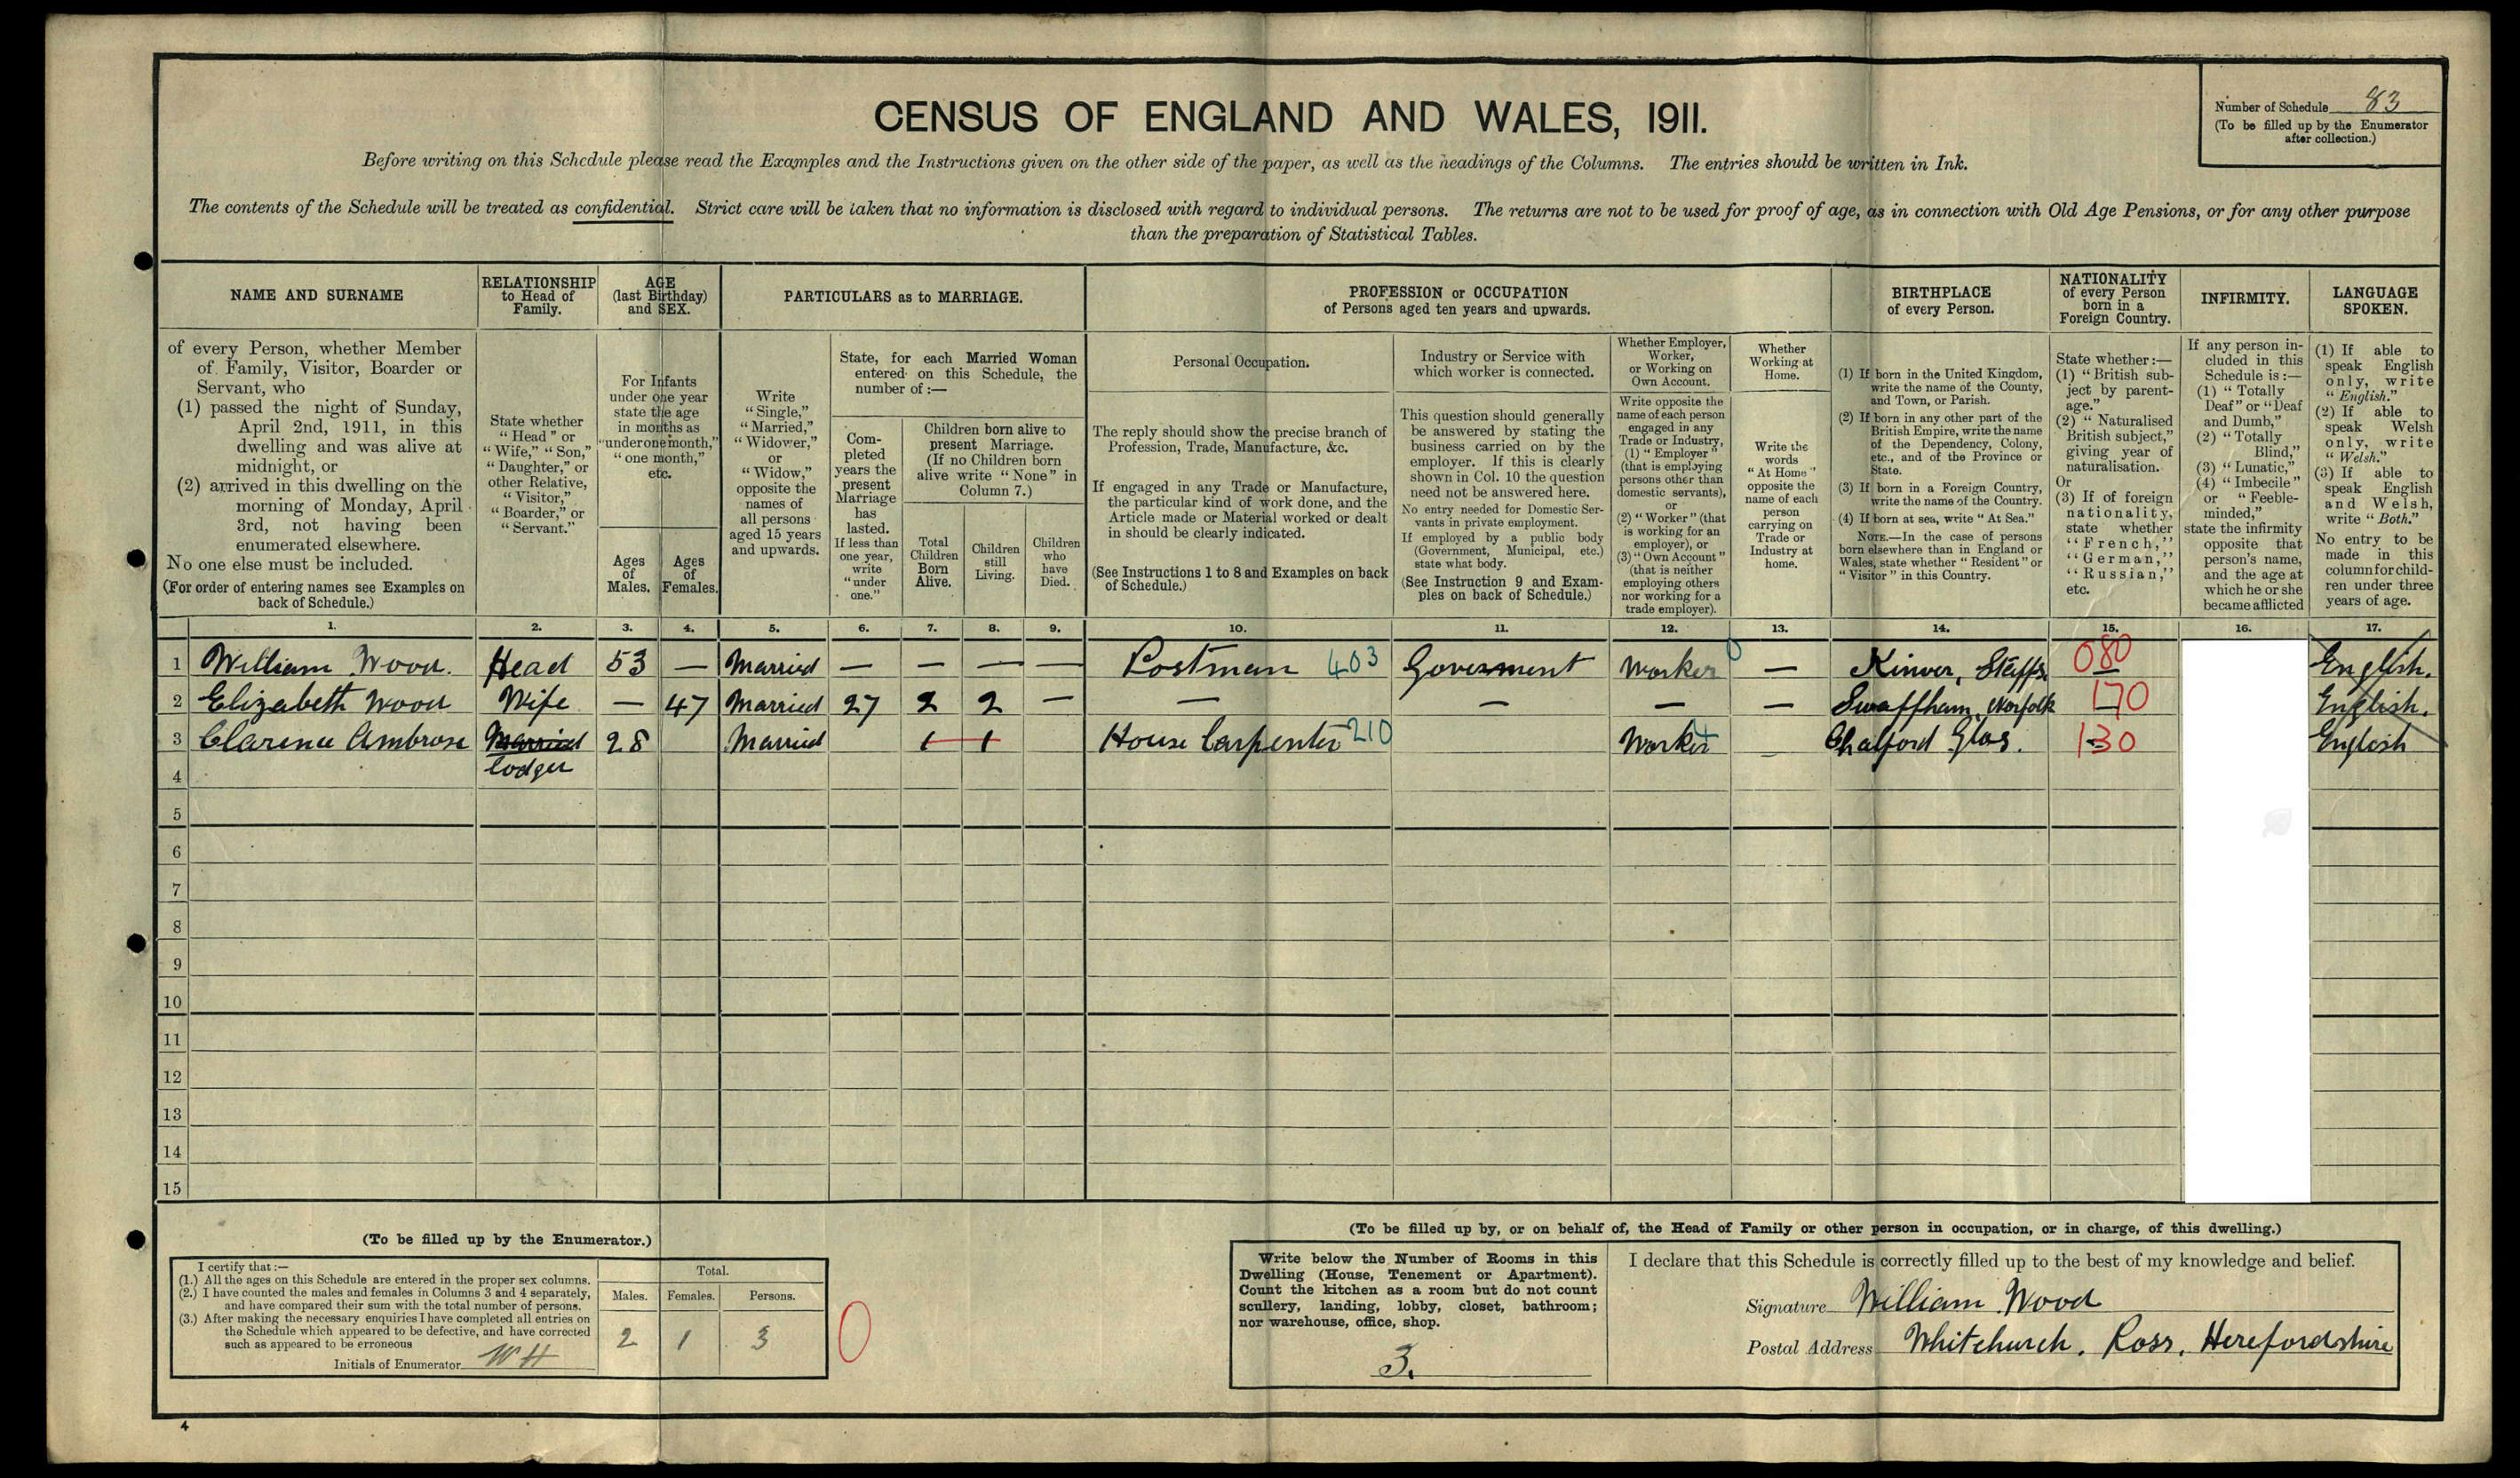 CENSUS OF ENGLAND AND WALES, 1911.
Number of Schedule 83
(To be filled up by the Enumerator
after collection.)
Before writing on this Schedule please read the Examples and the Instructions given on the other side of the paper, as well as the headings of the Columns. The entries should be written in Ink.
The contents of the Schedule will be treated as confidential. Strict care will be taken that no information is disclosed with regard to individual persons. The returns are not to be used for proof of age, as in connection with Old Age Pensions, or for any other purpose
than the preparation of Statistical Tables.
NAME AND SURNAME
of every Person, whether Member
of Family, Visitor, Boarder or
Servant, who
(1) passed the night of Sunday,
April 2nd, 1911, in this
dwelling and was alive at
midnight, or
(2) arrived in this dwelling on the
morning of Monday, April
3rd, not having been
enumerated elsewhere.
No one else must be included.
(For order of entering names see Examples on
back of Schedule.)
RELATIONSHIP
to Head of
Family.
State whether
"Head" or
"Wife," "Son,"
"Daughter," or
other Relative,
"Visitor,"
"Boarder," or
"Servant."
AGE
(last Birthday)
and SEX.
For Infants
under one year
state the age
in months as
"under one month,"
"one month,"
etc.
Ages
of
Males.
Ages
of
Females.
PARTICULARS as to MARRIAGE.
Write
"Single,"
"Married,"
"Widower,"
or
"Widow,"
opposite the
names of
all persons
aged 15 years
and upwards.
State, for each Married Woman
entered on this Schedule, the
number of :—
Com-
pleted
years the
present
Marriage
has
lasted.
If less than
one year,
write
"under
one."
Children born alive to
present Marriage.
(If no Children born
alive write "None" in
Column 7.)
Total
Children
Born
Alive.
Children
still
Living.
Children
who
have
Died.
PROFESSION or OCCUPATION
of Persons aged ten years and upwards.
Personal Occupation.
The reply should show the precise branch of
Profession, Trade, Manufacture, &c.
If engaged in any Trade or Manufacture,
the particular kind of work done, and the
Article made or Material worked or dealt
in should be clearly indicated.
(See Instructions 1 to 8 and Examples on back
of Schedule.)
Industry or Service with
which worker is connected.
This question should generally
be answered by stating the
business carried on by the
employer. If this is clearly
shown in Col. 10 the question
need not be answered here.
No entry needed for Domestic Ser-
vants in private employment.
If employed by a public body
(Government, Municipal, etc.)
state what body.
(See Instruction 9 and Exam-
ples on back of Schedule.)
Whether Employer,
Worker,
or Working on
Own Account.
Write opposite the
name of each person
engaged in any
Trade or Industry,
(1) "Employer"
(that is employing
persons other than
domestic servants),
or
(2) "Worker" (that
is working for an
employer), or
(3) "Own Account"
(that is neither
employing others
nor working for a
trade employer).
Whether
Working at
Home.
Write the
words
"At Home"
opposite the
name of each
person
carrying on
Trade or
Industry at
home.
BIRTHPLACE
of every Person.
(1) If born in the United Kingdom,
write the name of the County,
and Town, or Parish.
(2) If born in any other part of the
British Empire, write the name
of the Dependency, Colony,
etc., and of the Province or
State.
(3) If born in a Foreign Country,
write the name of the Country.
(4) If born at sea, write "At Sea."
NOTE.—In the case of persons
born elsewhere than in England or
Wales, state whether "Resident" or
"Visitor" in this Country.
NATIONALITY
of every Person
born in a
Foreign Country.
State whether :—
(1) "British sub-
ject by parent-
age."
(2) "Naturalised
British subject,"
giving year of
naturalisation.
Or
(3) If of foreign
nationality,
state whether
"French,"
"German,"
"Russian,"
etc.
INFIRMITY.
If any person in-
cluded in this
Schedule is :—
(1) "Totally
Deaf" or "Deaf
and Dumb,"
(2) "Totally
Blind,"
(3) "Lunatic,"
(4) "Imbecile"
or "Feeble-
minded,"
state the infirmity
opposite that
person's name,
and the age at
which he or she
became afflicted
LANGUAGE
SPOKEN.
(1) If able to
speak English
only, write
"English."
(2) If able to
speak Welsh
only, write
"Welsh."
(3) If able to
speak English
and Welsh,
write "Both."
No entry to be
made in this
column for child-
ren under three
years of age.
1. 2. 3. 4. 5. 6. 7. 8. 9. 10. 11. 12. 13. 14. 15. 16. 17.
1 William Wood. Head 53 — Married — — — — Postman 403 Government Worker 0 — Kinver, Staffs. 080 English.
2 Elizabeth Wood Wife — 47 Married 27 2 2 — — — — — Swaffham, Norfolk 170 English.
3 Clarence Ambrose Married 28 Married 1 1 House Carpenter 210 Worker — Chalford Glos. 130 English
4 lodger
5
6
7
8
9
10
11
12
13
14
15
(To be filled up by the Enumerator.)
I certify that :—
(1.) All the ages on this Schedule are entered in the proper sex columns.
(2.) I have counted the males and females in Columns 3 and 4 separately,
and have compared their sum with the total number of persons.
(3.) After making the necessary enquiries I have completed all entries on
the Schedule which appeared to be defective, and have corrected
such as appeared to be erroneous
Initials of Enumerator WH
Total.
Males. Females. Persons.
2 1 3
0
(To be filled up by, or on behalf of, the Head of Family or other person in occupation, or in charge, of this dwelling.)
Write below the Number of Rooms in this
Dwelling (House, Tenement or Apartment).
Count the kitchen as a room but do not count
scullery, landing, lobby, closet, bathroom;
nor warehouse, office, shop.
3.
I declare that this Schedule is correctly filled up to the best of my knowledge and belief.
Signature William Wood
Postal Address Whitchurch, Ross, Herefordshire
4